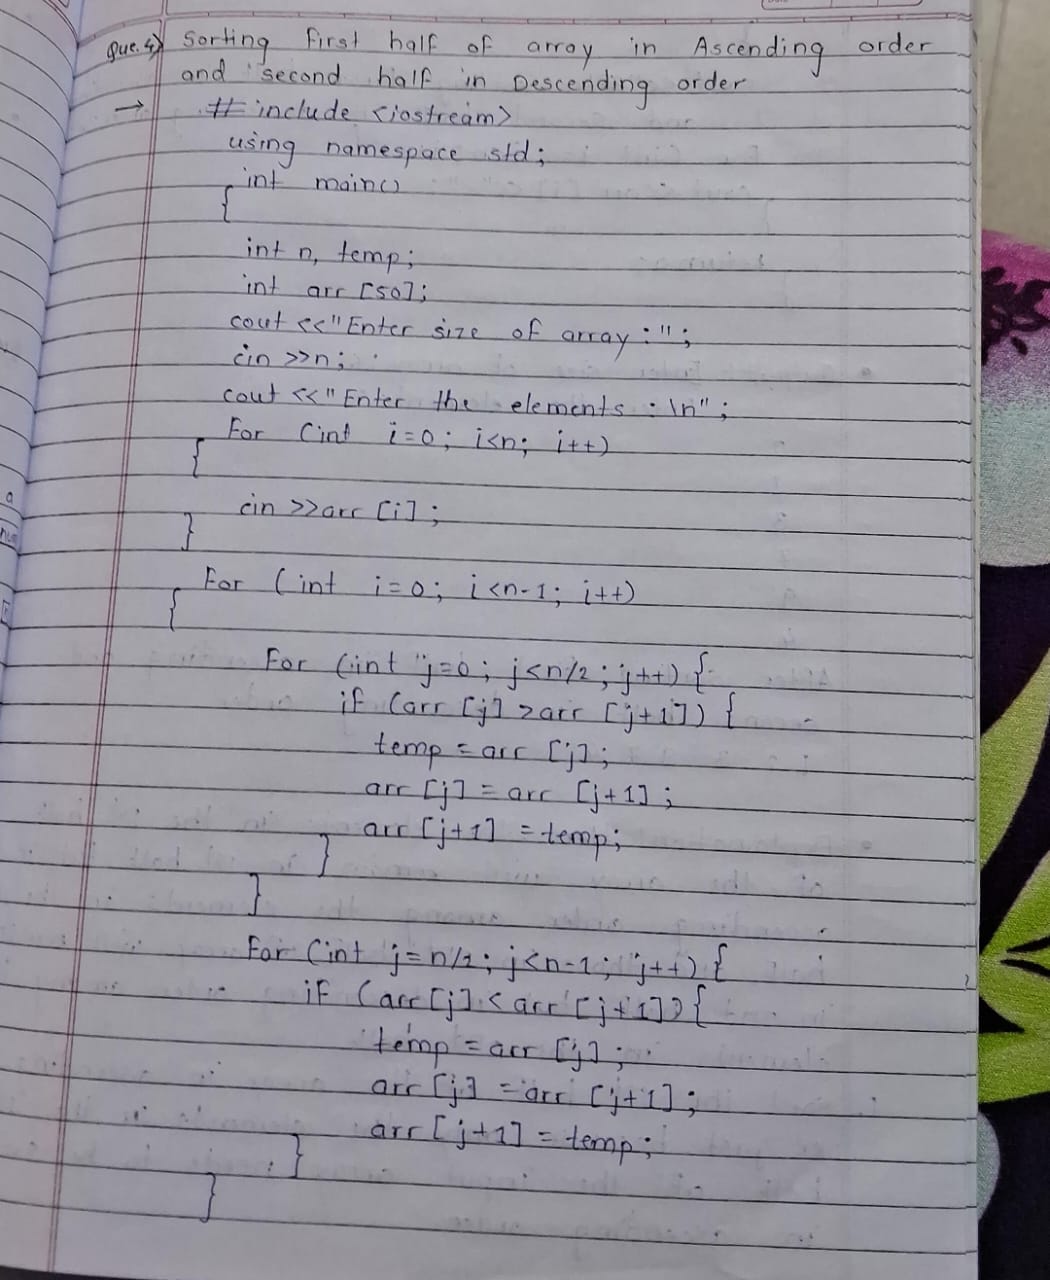 Que.4) Sorting First half of array in Ascending order
and second half in Descending order
→ # include <iostream>
using namespace std;
int main()
{
int n, temp;
int arr [50];
cout <<"Enter size of array :";
cin >>n;
cout <<"Enter the elements : \n";
For (int i=0; i<n; i++)
{
cin >>arr [i];
}
For (int i=0; i<n-1; i++)
{
For (int j=0; j<n/2; j++) {
if (arr [j] >arr [j+1]) {
temp = arr [j];
arr [j] = arr [j+1];
arr [j+1] = temp;
}
}
For (int j=n/2; j<n-1; j++) {
if (arr [j] < arr [j+1]) {
temp = arr [j];
arr [j] = arr [j+1];
arr [j+1] = temp;
}
}